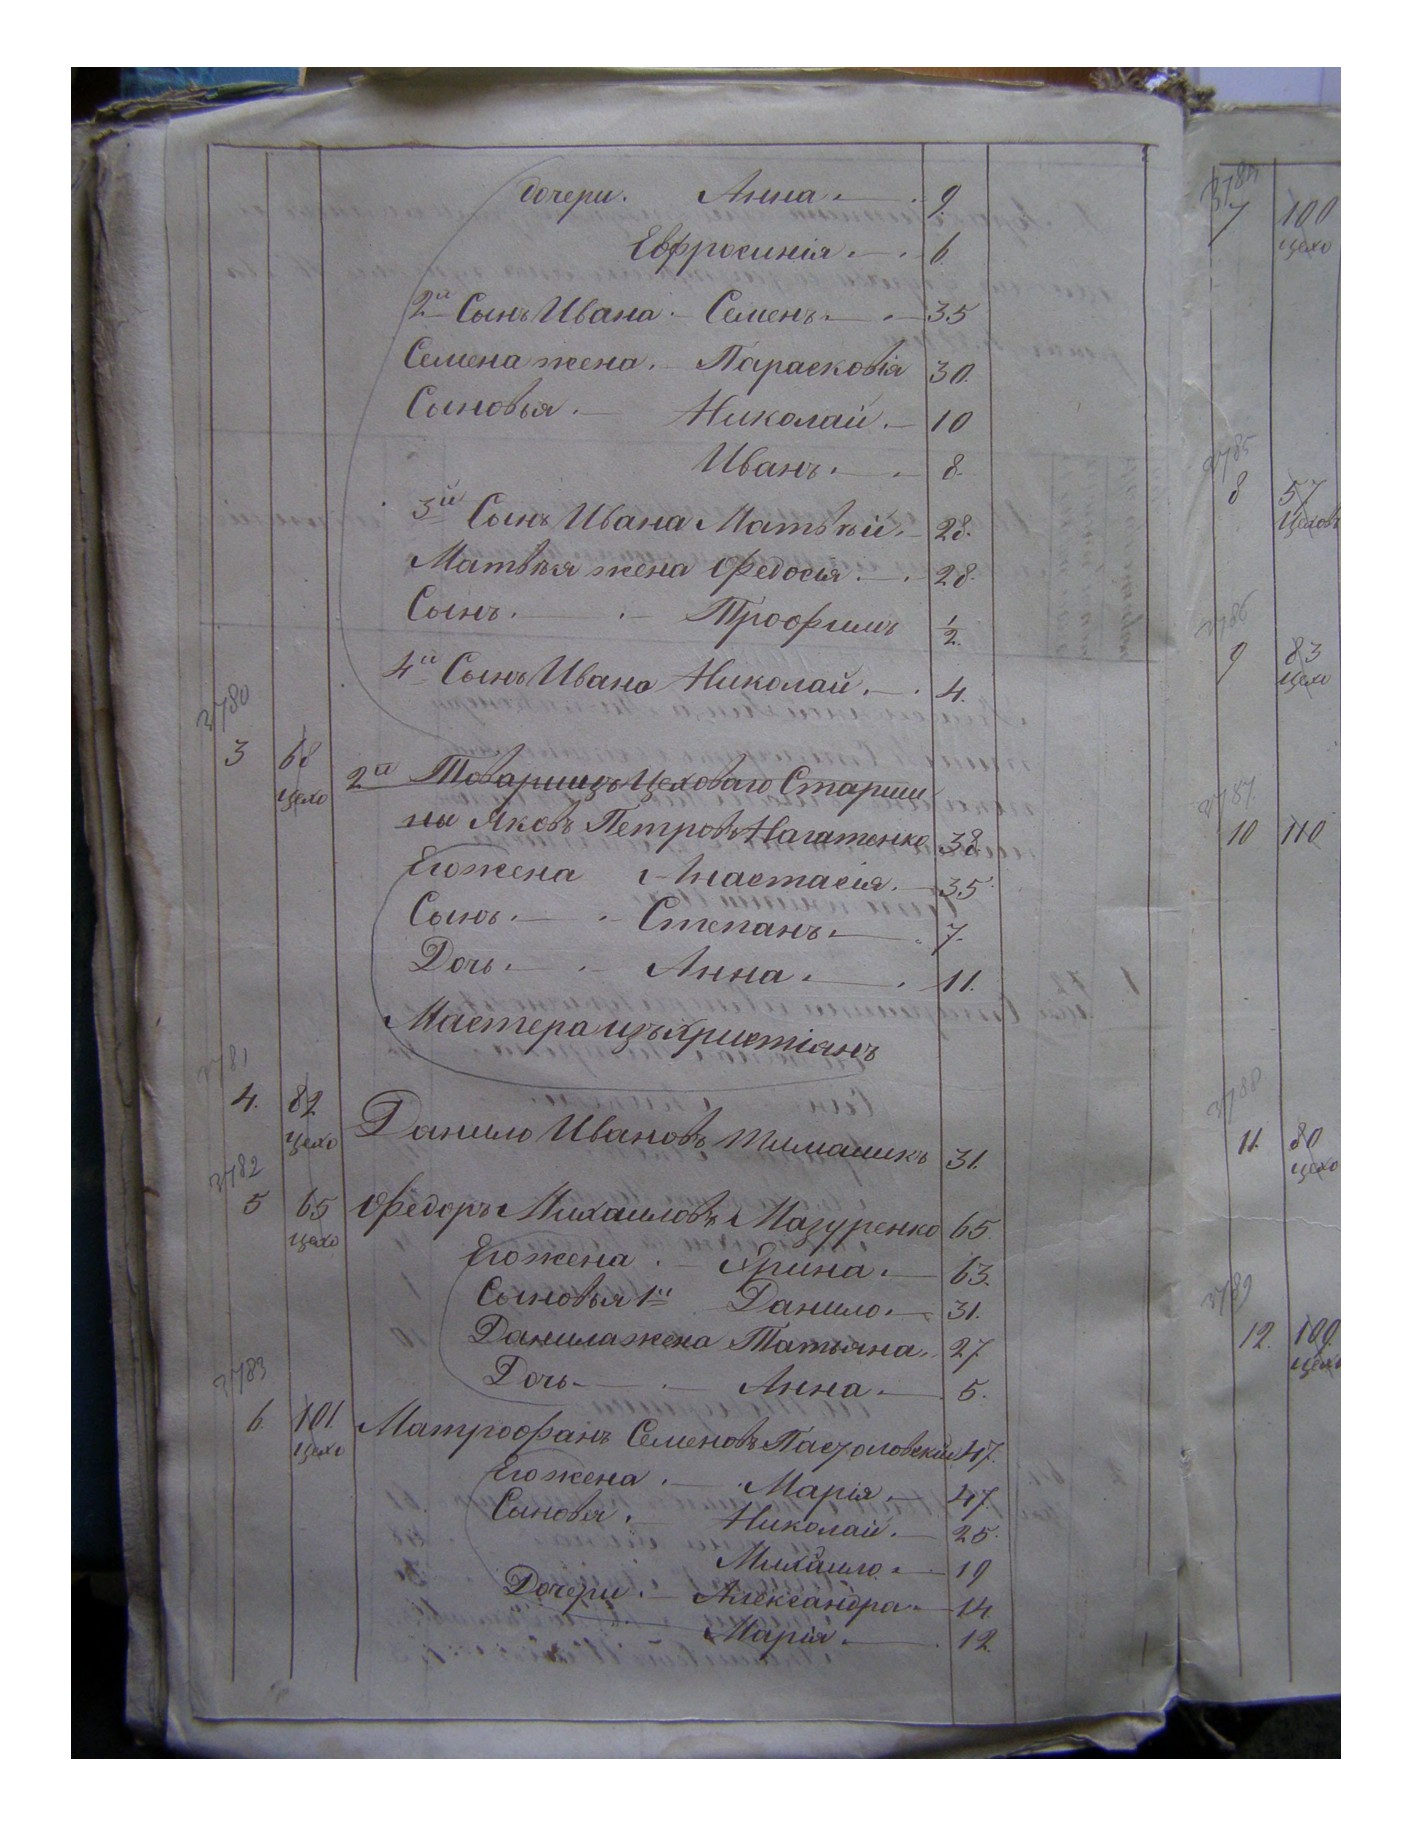 Дочери. Анна. 9.
Евфросинія. 6
2й Сынъ Ивана Семенъ. 35
Семена жена. Парасковія 30.
Сыновья. Николай. 10
Иванъ. 8.
3й Сынъ Ивана Матвѣй. 28.
Матвѣя жена Ѳедосья. 28.
Сынъ. Трофимъ ½
4й Сынъ Ивана Николай. 4.
3780
3 68 2й Товарищъ Цеховаго Старши
цехо ны Яковъ Петровъ Нагатенко 38.
Его жена Анастасія. 35.
Сынъ. Степанъ. 7.
Дочь. Анна. 11.
Мастера изъ христіанъ
3781
4. 82 Данило Ивановъ 31.
цехо
3782
5 65 Ѳедоръ Михаиловъ Мазуренко 65.
цехо
Его жена. Ярина. 63.
Сыновья 1й Данило. 31.
Данила жена Татьяна. 27
Дочь. Анна. 5.
3783
6. 101. Матрофанъ Семеновъ 47.
цехо
Его жена. Марія. 47.
Сыновья. Николай. 25.
Михайло. 19
Дочери. Александра. 14
Марія. 12.
3784
7 100
цехо
3785
8 57
Цеховъ
3786
9 83
цехо
3787.
10 110
3788
11. 80
цехо
3789
12. 109.
цехо